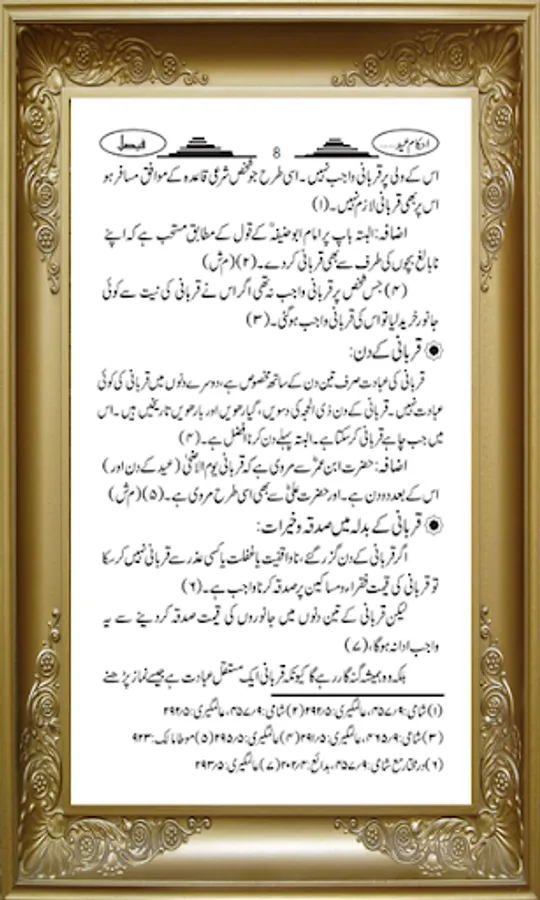 احکام عید.....
8
فیصل
اس کے ولی پر قربانی واجب نہیں۔ اسی طرح جو شخص شرعی قاعدہ کے موافق مسافر ہو
اس پر بھی قربانی لازم نہیں۔(۱)
اضافہ: البتہ باپ پر امام ابوحنیفہؒ کے قول کے مطابق مستحب ہے کہ اپنے
نابالغ بچوں کی طرف سے بھی قربانی کردے۔(۲)(م ش)
(۴) جس شخص پر قربانی واجب نہ تھی اگر اس نے قربانی کی نیت سے کوئی
جانور خرید لیا تو اس کی قربانی واجب ہوگئی۔(۳)
قربانی کے دن:
قربانی کی عبادت صرف تین دن کے ساتھ مخصوص ہے، دوسرے دنوں میں قربانی کی کوئی
عبادت نہیں۔ قربانی کے دن ذی الحجہ کی دسویں، گیارھویں اور بارھویں تاریخیں ہیں۔ اس
میں جب چاہے قربانی کرسکتا ہے۔ البتہ پہلے دن کرنا افضل ہے۔(۴)
اضافہ: حضرت ابن عمرؓ سے مروی ہے کہ قربانی یوم الاضحیٰ (عید کے دن اور)
اس کے بعد دو دن ہے۔ اور حضرت علیؓ سے بھی اسی طرح مروی ہے۔(۵)(م ش)
قربانی کے بدلہ میں صدقہ وخیرات:
اگر قربانی کے دن گزر گئے، ناواقفیت یا غفلت یا کسی عذر سے قربانی نہیں کرسکا
تو قربانی کی قیمت فقراء ومساکین پر صدقہ کرنا واجب ہے۔(۶)
لیکن قربانی کے تین دنوں میں جانوروں کی قیمت صدقہ کردینے سے یہ
واجب ادا نہ ہوگا، (۷)
بلکہ وہ ہمیشہ گنہگار رہے گا کیونکہ قربانی ایک مستقل عبادت ہے جیسے نماز پڑھنے
(۱) شامی: ۴۵۷/۹، عالمگیری: ۲۹۲/۵ (۲) شامی: ۴۵۷/۹، عالمگیری: ۲۹۳/۵
(۳) شامی: ۴۶۵/۹، عالمگیری: ۲۹۱/۵ (۴) عالمگیری: ۲۹۵/۵ (۵) موطا مالک: ۹۲۳
(۶) درمختار مع شامی: ۴۵۷/۹، بدائع: ۲۰۲/۴ (۷) عالمگیری: ۲۹۳/۵